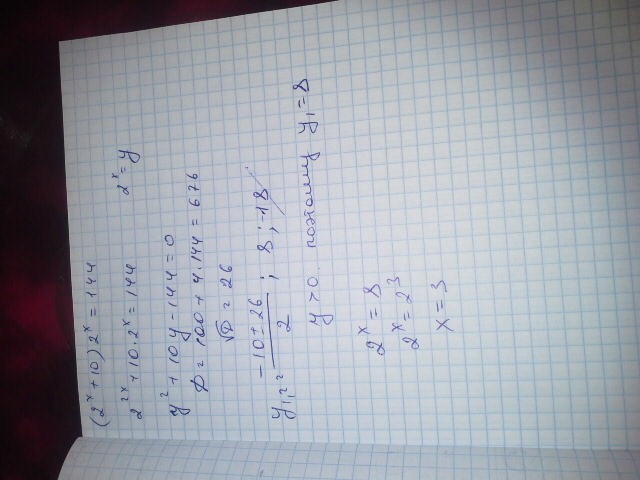 (2^x + 10) 2^x = 144
2^2x + 10 · 2^x = 144   2^x = y
y^2 + 10y - 144 = 0
D = 100 + 4 · 144 = 676
√D = 26
y1,2 = (-10 ± 26) / 2 ; 8 ; -18
y > 0 поэтому y1 = 8
2^x = 8
2^x = 2^3
x = 3